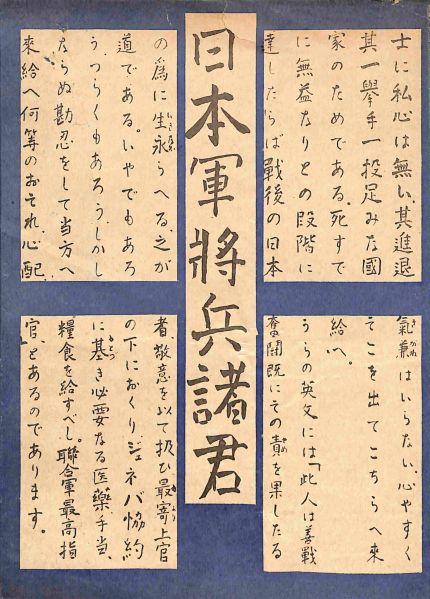 日本軍將兵諸君
士に私心は無い其進退
其一擧手一投足みな國
家のためである、死すで
に無益なりとの段階に
達したらば戰後の日本
の爲に生永らへる、之が
道である。いやでもあろ
う、つらくもあろうしかし
ならぬ勘忍をして当方へ
来給へ何等のおそれ、心配、
氣兼はいらない、心やすく
そこを出てこちらへ来
給へ。
うらの英文には「此人は善戰
奮鬪既にその責を果したる
者、敬意を以て扱ひ最寄上官
の下におくりジェネバ協約
に基き必要なる医藥、手当、
糧食を給すべし。聯合軍最高指
官、とあるのであります。